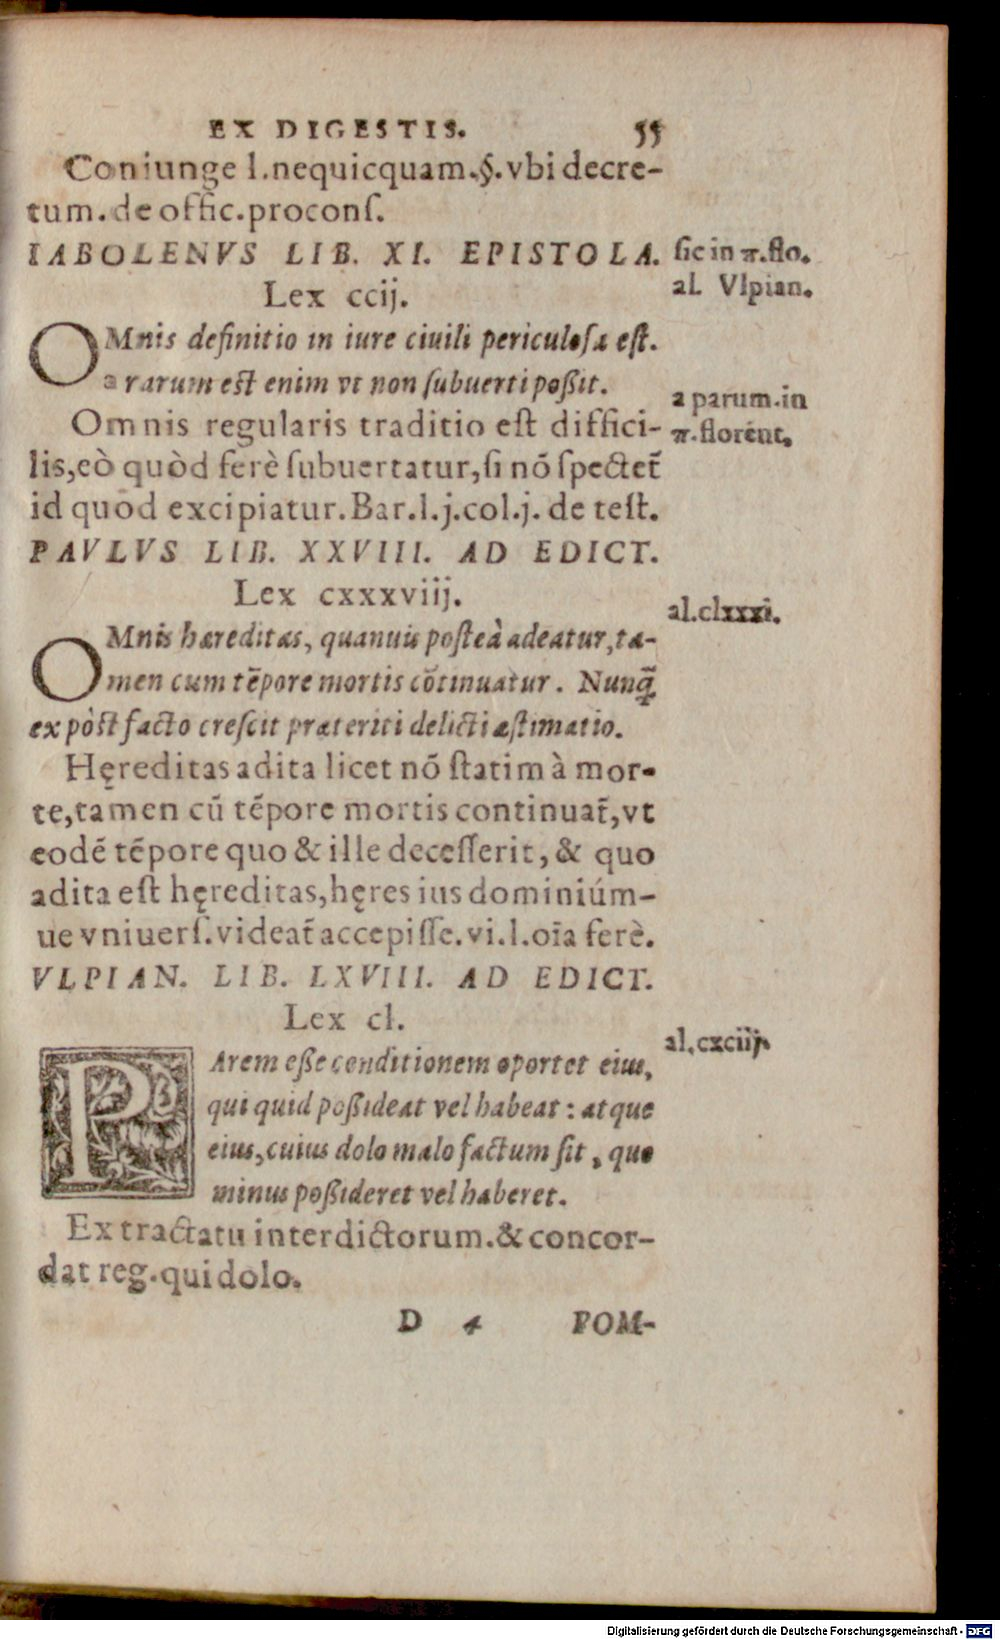 EX DIGESTIS. 55
Coniunge l.nequicquam.§.vbi decre-
tum.de offic.proconſ.
IABOLENVS LIB. XI. EPISTOLA.
ſic in π.flo.
al. Vlpian.
Lex ccij.
OMnis definitio in iure ciuili periculoſa eſt.
a rarum eſt enim vt non ſubuerti poßit.
a parum.in
π.florēnt.
Omnis regularis traditio eſt diffici-
lis,eò quòd ferè ſubuertatur,ſi nō ſpectet̃
id quod excipiatur.Bar.l.j.col.j. de teſt.
PAVLVS LIB. XXVIII. AD EDICT.
Lex cxxxviij.
al.clxxxi.
OMnis hæreditas, quanuis poſteà adeatur,ta-
men cum tēpore mortis cōtinuatur. Nunq̃
ex pòſt facto creſcit præteriti delicti æſtimatio.
Hęreditas adita licet nō ſtatim à mor-
te,tamen cū tēpore mortis continuat̃,vt
eodē tēpore quo & ille deceſſerit, & quo
adita eſt hęreditas,hęres ius dominiúm-
ue vniuerſ.videat̃ accepiſſe.vi.l.oīa ferè.
VLPIAN. LIB. LXVIII. AD EDICT.
Lex cl.
al.cxciij.
PArem eße conditionem oportet eius,
qui quid poßideat vel habeat : atque
eius,cuius dolo malo factum ſit, quo
minus poßideret vel haberet.
Ex tractatu interdictorum.& concor-
dat reg.qui dolo.
D 4 POM-
Digitalisierung gefördert durch die Deutsche Forschungsgemeinschaft - DFG